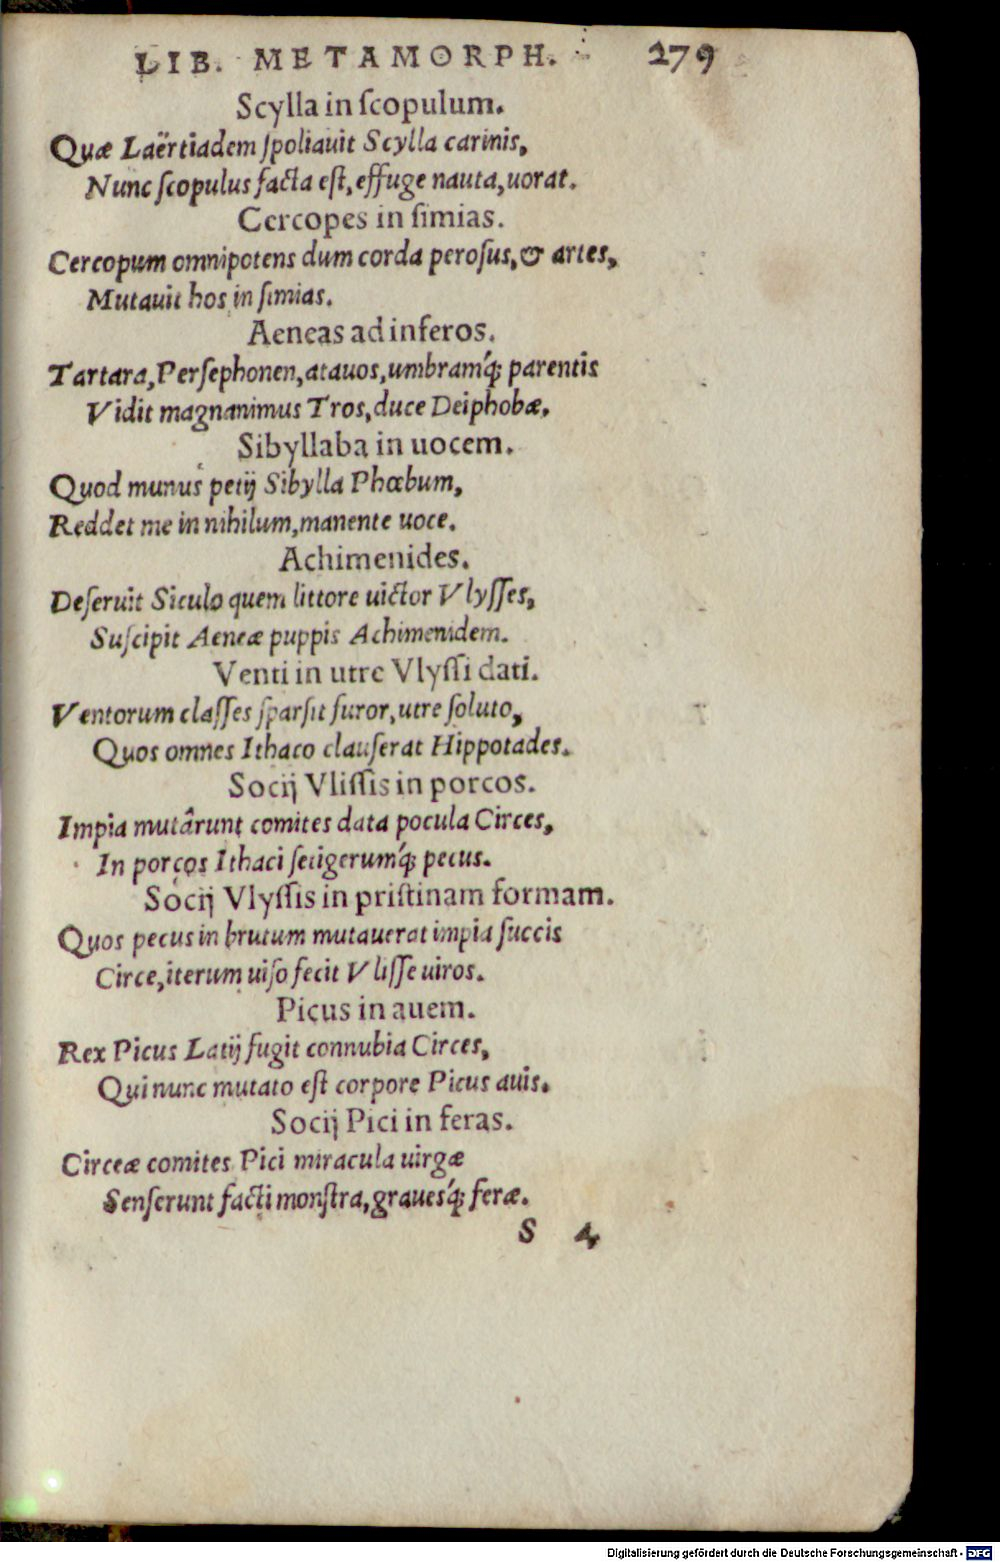 LIB. METAMORPH. 279
Scylla in ſcopulum.
Quæ Laërtiadem ſpoliauit Scylla carinis,
Nunc ſcopulus facta eſt, effuge nauta, uorat.
Cercopes in ſimias.
Cercopum omnipotens dum corda peroſus, & artes,
Mutauit hos in ſimias.
Aeneas ad inferos.
Tartara, Perſephonen, atauos, umbramq́; parentis
Vidit magnanimus Tros, duce Deiphobæ,
Sibyllaba in uocem.
Quod munus petij Sibylla Phœbum,
Reddet me in nihilum, manente uoce.
Achimenides.
Deſeruit Siculo quem littore uictor Vlyſſes,
Suſcipit Aeneæ puppis Achimenidem.
Venti in utre Vlyſſi dati.
Ventorum claſſes ſparſit furor, utre ſoluto,
Quos omnes Ithaco clauſerat Hippotades.
Socij Vliſſis in porcos.
Impia mutârunt comites data pocula Circes,
In porcos Ithaci ſetigerumq́; pecus.
Socij Vlyſſis in priſtinam formam.
Quos pecus in brutum mutauerat impia ſuccis
Circe, iterum uiſo fecit Vliſſe uiros.
Picus in auem.
Rex Picus Latij fugit connubia Circes,
Qui nunc mutato eſt corpore Picus auis.
Socij Pici in feras.
Circeæ comites Pici miracula uirgæ
Senſerunt facti monſtra, grauesq́; feræ.
S 4
Digitalisierung gefördert durch die Deutsche Forschungsgemeinschaft - DFG